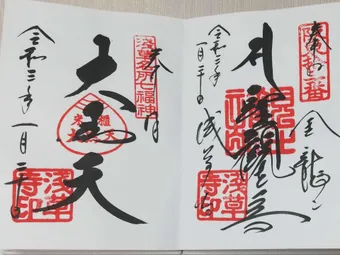 奉拝
金龍山
聖観世音
令和三年
一月二十日
浅草寺
浅草寺印
奉拝
浅草名所七福神
大黒天
令和三年一月二十日
浅草寺印